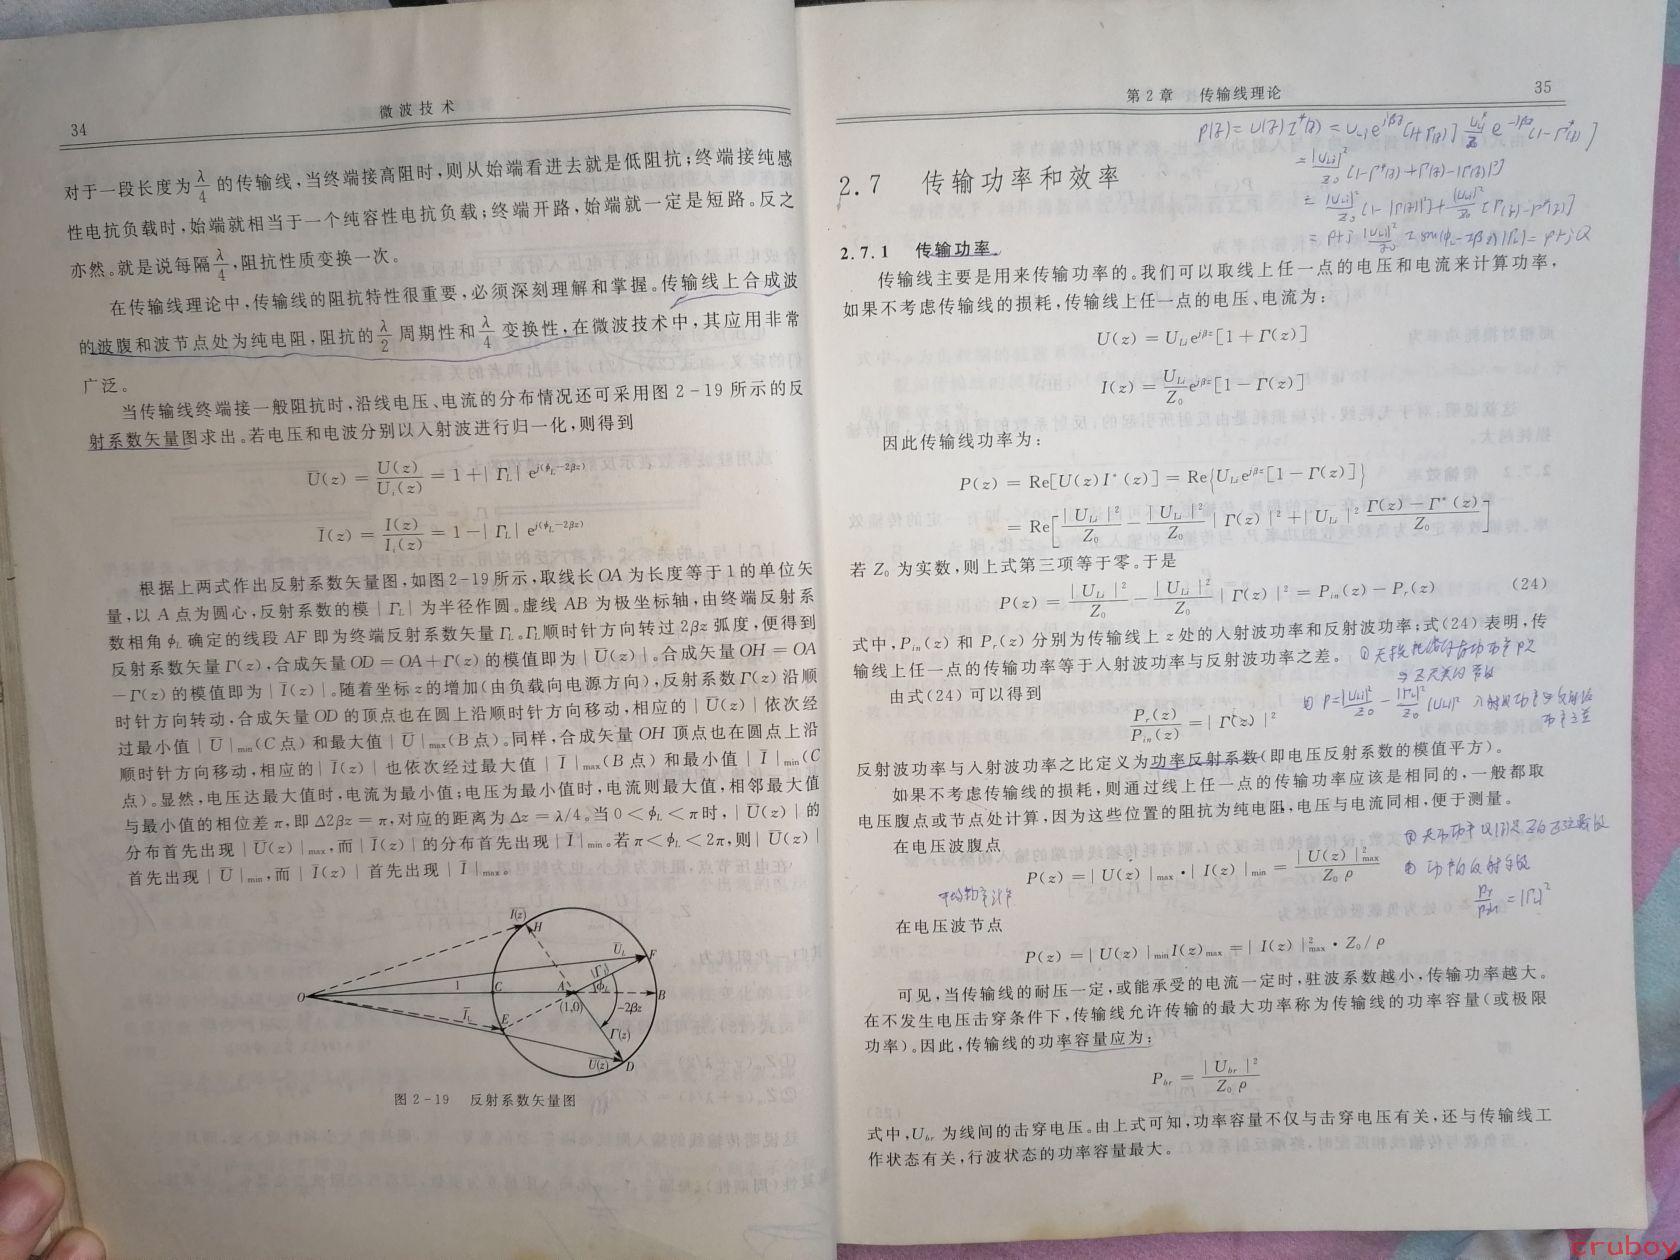 34
微波技术
对于一段长度为 λ/4 的传输线,当终端接高阻时,则从始端看进去就是低阻抗;终端接纯感
性电抗负载时,始端就相当于一个纯容性电抗负载;终端开路,始端就一定是短路。反之
亦然。就是说每隔 λ/4 ,阻抗性质变换一次。
在传输线理论中,传输线的阻抗特性很重要,必须深刻理解和掌握。传输线上合成波
的波腹和波节点处为纯电阻,阻抗的 λ/2 周期性和 λ/4 变换性,在微波技术中,其应用非常
广泛。
当传输线终端接一般阻抗时,沿线电压、电流的分布情况还可采用图 2-19 所示的反
射系数矢量图求出。若电压和电波分别以入射波进行归一化,则得到
Ū(z) = U(z)/Uᵢ(z) = 1+| Γ_L | e^{j(φ_L-2βz)}
Ī(z) = I(z)/Iᵢ(z) = 1-| Γ_L | e^{j(φ_L-2βz)}
根据上两式作出反射系数矢量图,如图2-19所示,取线长OA为长度等于1的单位矢
量,以 A 点为圆心,反射系数的模 | Γ_L | 为半径作圆。虚线 AB 为极坐标轴,由终端反射系
数相角 φ_L 确定的线段 AF 即为终端反射系数矢量 Γ_L。Γ_L顺时针方向转过 2βz 弧度,便得到
反射系数矢量Γ(z),合成矢量OD=OA+Γ(z)的模值即为|Ū(z)|。合成矢量OH=OA
-Γ(z)的模值即为|Ī(z)|。随着坐标z的增加(由负载向电源方向),反射系数Γ(z)沿顺
时针方向转动,合成矢量OD的顶点也在圆上沿顺时针方向移动,相应的|Ū(z)|依次经
过最小值|Ū|min(C点)和最大值|Ū|max(B点)。同样,合成矢量OH顶点也在圆点上沿
顺时针方向移动,相应的|Ī(z)|也依次经过最大值|Ī|max(B点)和最小值|Ī|min(C
点)。显然,电压达最大值时,电流为最小值;电压为最小值时,电流则最大值,相邻最大值
与最小值的相位差π,即Δ2βz=π,对应的距离为Δz=λ/4。当0<φ_L<π时,|Ū(z)|的
分布首先出现|Ū(z)|max,而|Ī(z)|的分布首先出现|Ī|min。若π<φ_L<2π,则|Ū(z)|
首先出现|Ū|min,而|Ī(z)|首先出现|Ī|max。
I(z)
H
Ū_L
F
|Γ_L|
φ_L
O
1
C
A
B
(1,0)
-2βz
Ī_L
E
Γ(z)
Ū(z)
D
图 2-19 反射系数矢量图
第2章 传输线理论
35
2.7 传输功率和效率
2.7.1 传输功率
传输线主要是用来传输功率的。我们可以取线上任一点的电压和电流来计算功率,
如果不考虑传输线的损耗,传输线上任一点的电压、电流为:
U(z) = U_{Li}e^{jβz}[1+Γ(z)]
I(z) = U_{Li}/Z₀ e^{jβz}[1-Γ(z)]
因此传输线功率为:
P(z) = Re[U(z)I*(z)] = Re{U_{Li}e^{jβz}[1-Γ(z)]}
= Re[|U_{Li}|²/Z₀ - |U_{Li}|²/Z₀ |Γ(z)|²+|U_{Li}|² (Γ(z)-Γ*(z))/Z₀]
若 Z₀ 为实数,则上式第三项等于零。于是
P(z) = |U_{Li}|²/Z₀ - |U_{Li}|²/Z₀ |Γ(z)|² = P_in(z)-P_r(z) (24)
式中,P_in(z) 和 P_r(z) 分别为传输线上 z 处的入射波功率和反射波功率;式(24)表明,传
输线上任一点的传输功率等于入射波功率与反射波功率之差。
由式(24)可以得到
P_r(z)/P_in(z) = |Γ(z)|²
反射波功率与入射波功率之比定义为功率反射系数(即电压反射系数的模值平方)。
如果不考虑传输线的损耗,则通过线上任一点的传输功率应该是相同的,一般都取
电压腹点或节点处计算,因为这些位置的阻抗为纯电阻,电压与电流同相,便于测量。
在电压波腹点
P(z) = |U(z)|max·|I(z)|min = |U(z)|²max/(Z₀ρ)
在电压波节点
P(z) = |U(z)|min I(z)max = |I(z)|²max·Z₀/ρ
可见,当传输线的耐压一定,或能承受的电流一定时,驻波系数越小,传输功率越大。
在不发生电压击穿条件下,传输线允许传输的最大功率称为传输线的功率容量(或极限
功率)。因此,传输线的功率容量应为:
P_br = |U_br|²/(Z₀ρ)
式中,U_br 为线间的击穿电压。由上式可知,功率容量不仅与击穿电压有关,还与传输线工
作状态有关,行波状态的功率容量最大。
cruboy